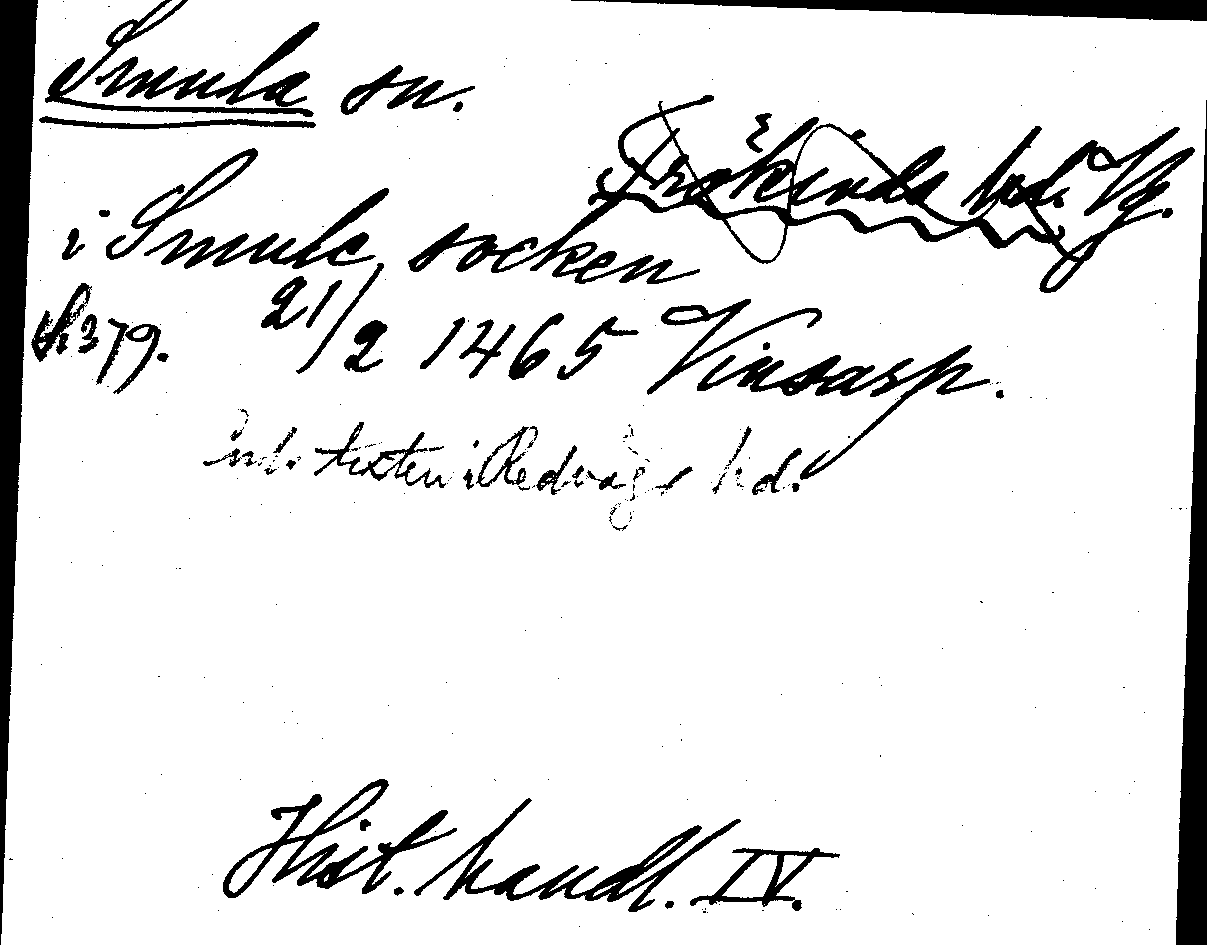 Smula sn.
Frökinds hd. Vg.
i Smule socken
s. 379. 21/2 1465 Vinsarp.
enl. texten i Redvägs hd.
Hist. handl. IV.